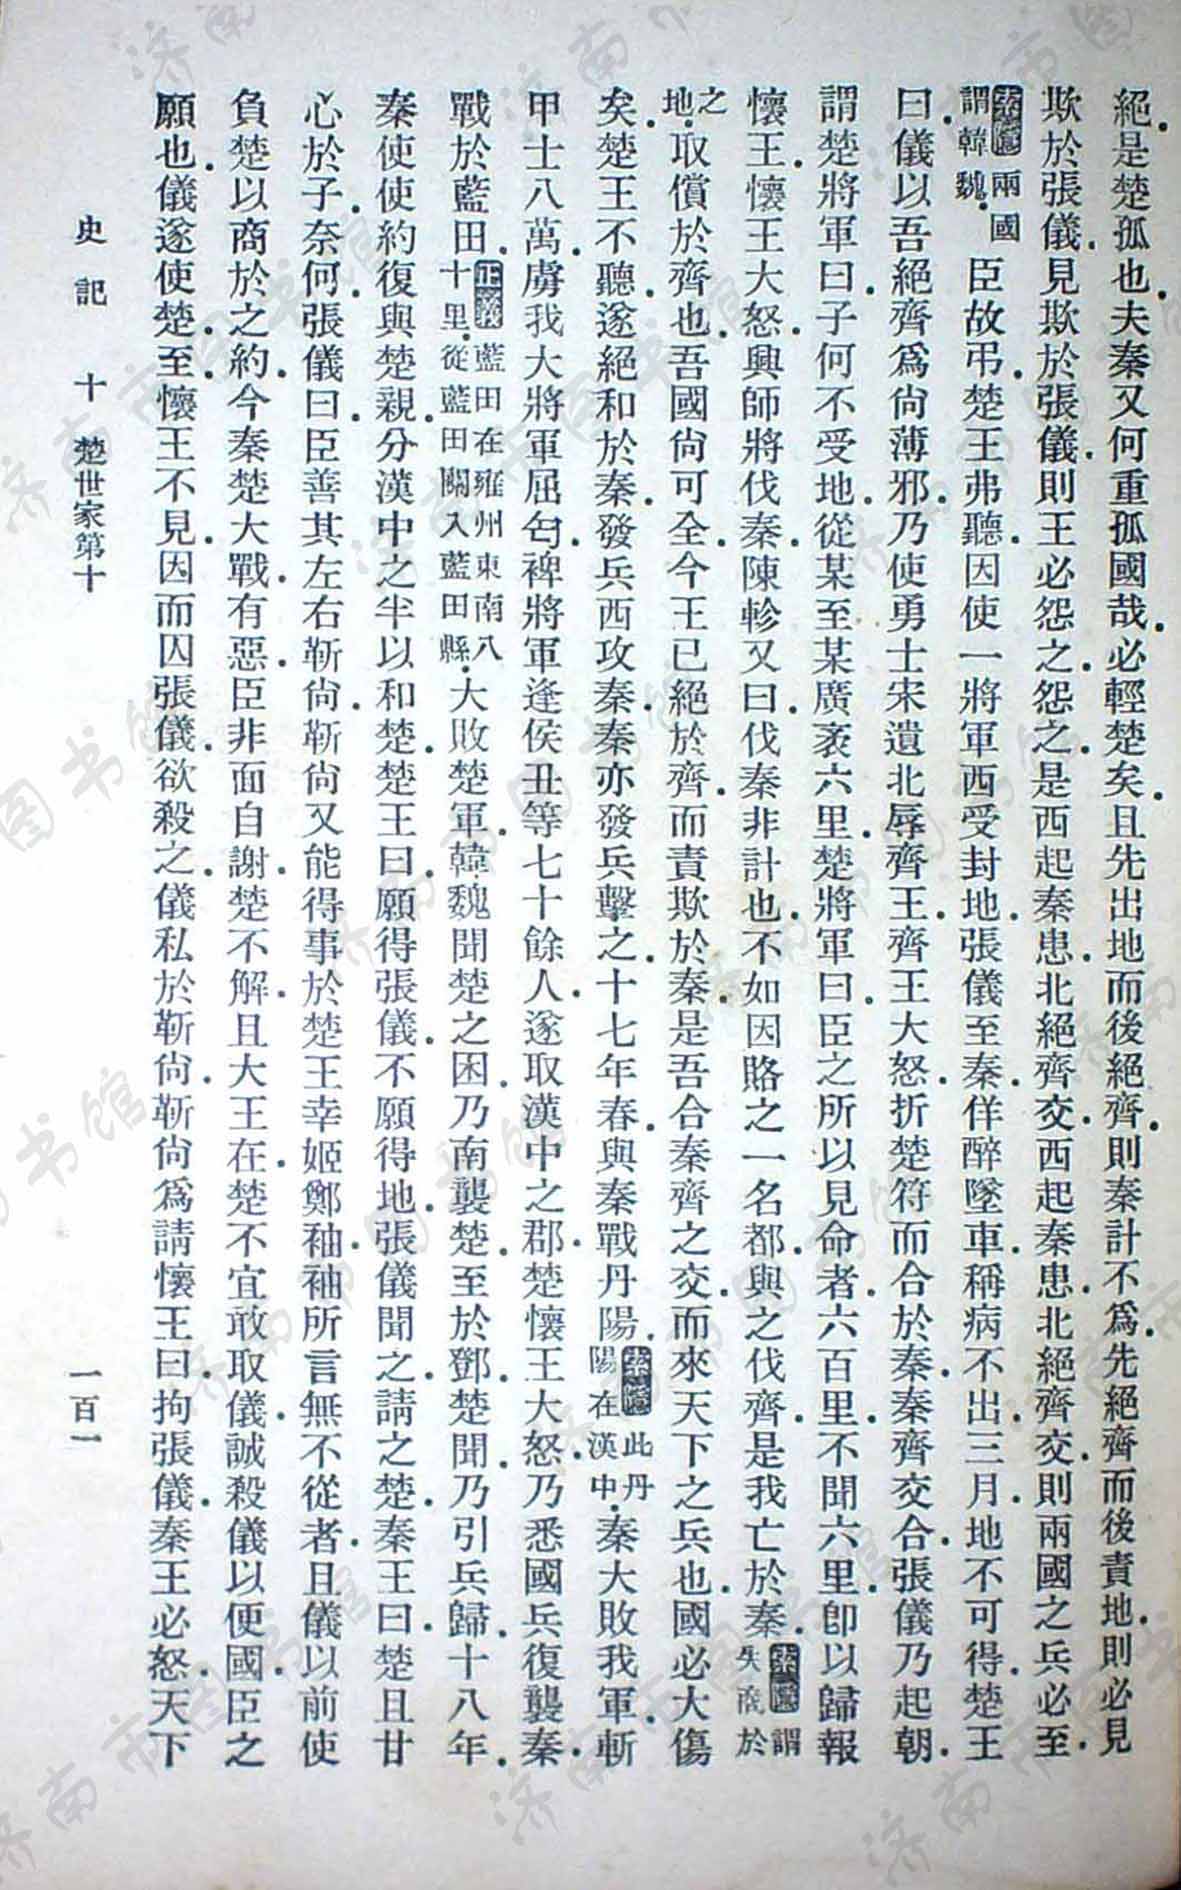 絕.是楚孤也.夫秦又何重孤國哉.必輕楚矣.且先出地而後絕齊.則秦計不爲.先絕齊而後責地.則必見
欺於張儀.見欺於張儀.則王必怨之.怨之.是西起秦患.北絕齊交.西起秦患.北絕齊交.則兩國之兵必至.
索隱兩國謂韓魏.臣故弔.楚王弗聽.因使一將軍西受封地.張儀至秦.佯醉墜車.稱病不出三月.地不可得.楚王
曰.儀以吾絕齊爲尙薄邪.乃使勇士宋遺北辱齊王.齊王大怒.折楚符而合於秦.秦齊交合.張儀乃起朝.
謂楚將軍曰.子何不受地.從某至某廣袤六里.楚將軍曰.臣之所以見命者.六百里.不聞六里.卽以歸報
懷王.懷王大怒.興師將伐秦.陳軫又曰.伐秦非計也.不如因賂之一名都.與之伐齊.是我亡於秦.索隱謂失商於
之地.取償於齊也.吾國尙可全.今王已絕於齊.而責欺於秦.是吾合秦齊之交.而來天下之兵也.國必大傷
矣.楚王不聽.遂絕和於秦.發兵西攻秦.秦亦發兵擊之.十七年春.與秦戰丹陽.索隱此丹陽在漢中.秦大敗我軍.斬
甲士八萬.虜我大將軍屈匄.裨將軍逢侯丑等七十餘人.遂取漢中之郡.楚懷王大怒.乃悉國兵復襲秦.
戰於藍田.正義藍田在雍州東南八十里.從藍田關入藍田縣.大敗楚軍.韓魏聞楚之困.乃南襲楚.至於鄧.楚聞.乃引兵歸.十八年.
秦使使約復與楚親.分漢中之半以和楚.楚王曰.願得張儀.不願得地.張儀聞之.請之楚.秦王曰.楚且甘
心於子.奈何.張儀曰.臣善其左右靳尙.靳尙又能得事於楚王幸姬鄭袖.袖所言無不從者.且儀以前使
負楚以商於之約.今秦楚大戰.有惡.臣非面自謝.楚不解.且大王在.楚不宜敢取儀.誠殺儀以便國.臣之
願也.儀遂使楚.至.懷王不見.因而囚張儀.欲殺之.儀私於靳尙.靳尙爲請懷王曰.拘張儀.秦王必怒.天下
史記　十　楚世家第十　一百一
济南市图书馆